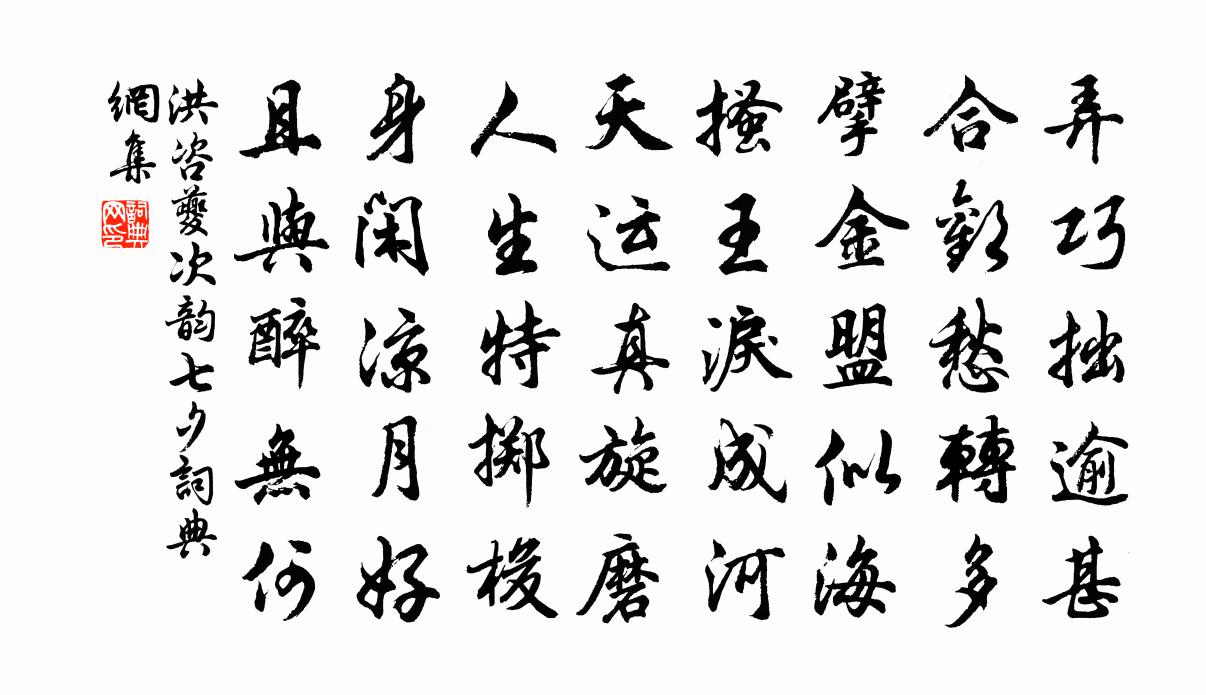 弄巧拙逾甚
合歡愁轉多
擘金盟似海
搔王淚成河
天运真旋磨
人生特掷梭
身闲涼月好
且與醉無何
洪咨夔次韵七夕詞典
網集
詞典
网印